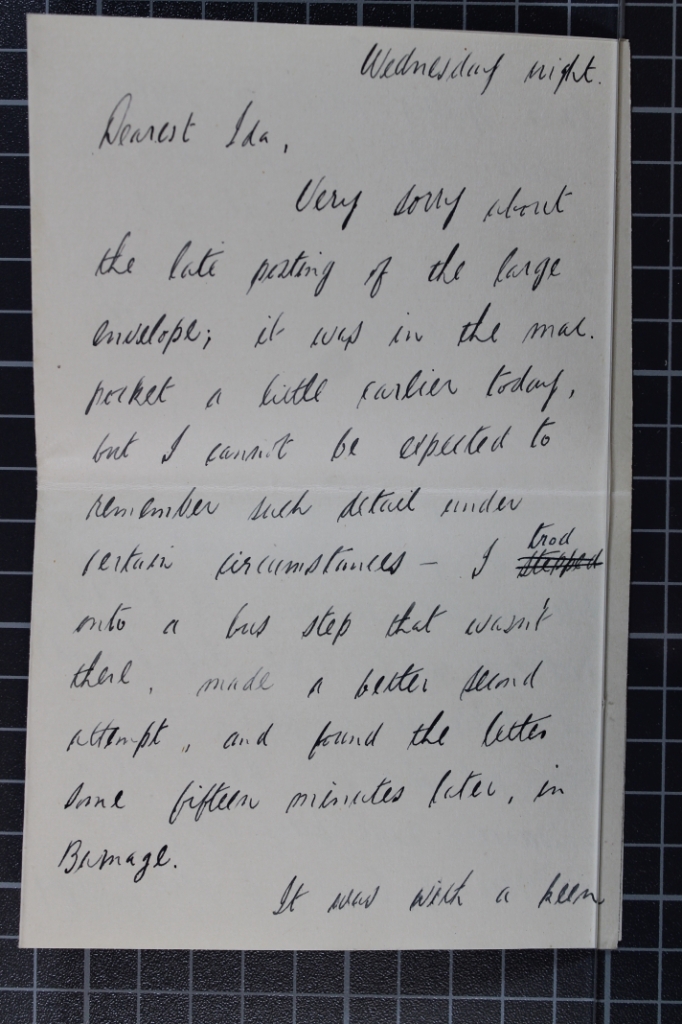 Wednesday night.
Dearest Ida,
Very sorry about
the late posting of the large
envelope; it was in the mac.
pocket a little earlier today,
but I cannot be expected to
remember such detail under
certain circumstances – I trod
stepped
onto a bus step that wasn't
there, made a better second
attempt, and found the letter
some fifteen minutes later, in
Burnage.
It was with a keen